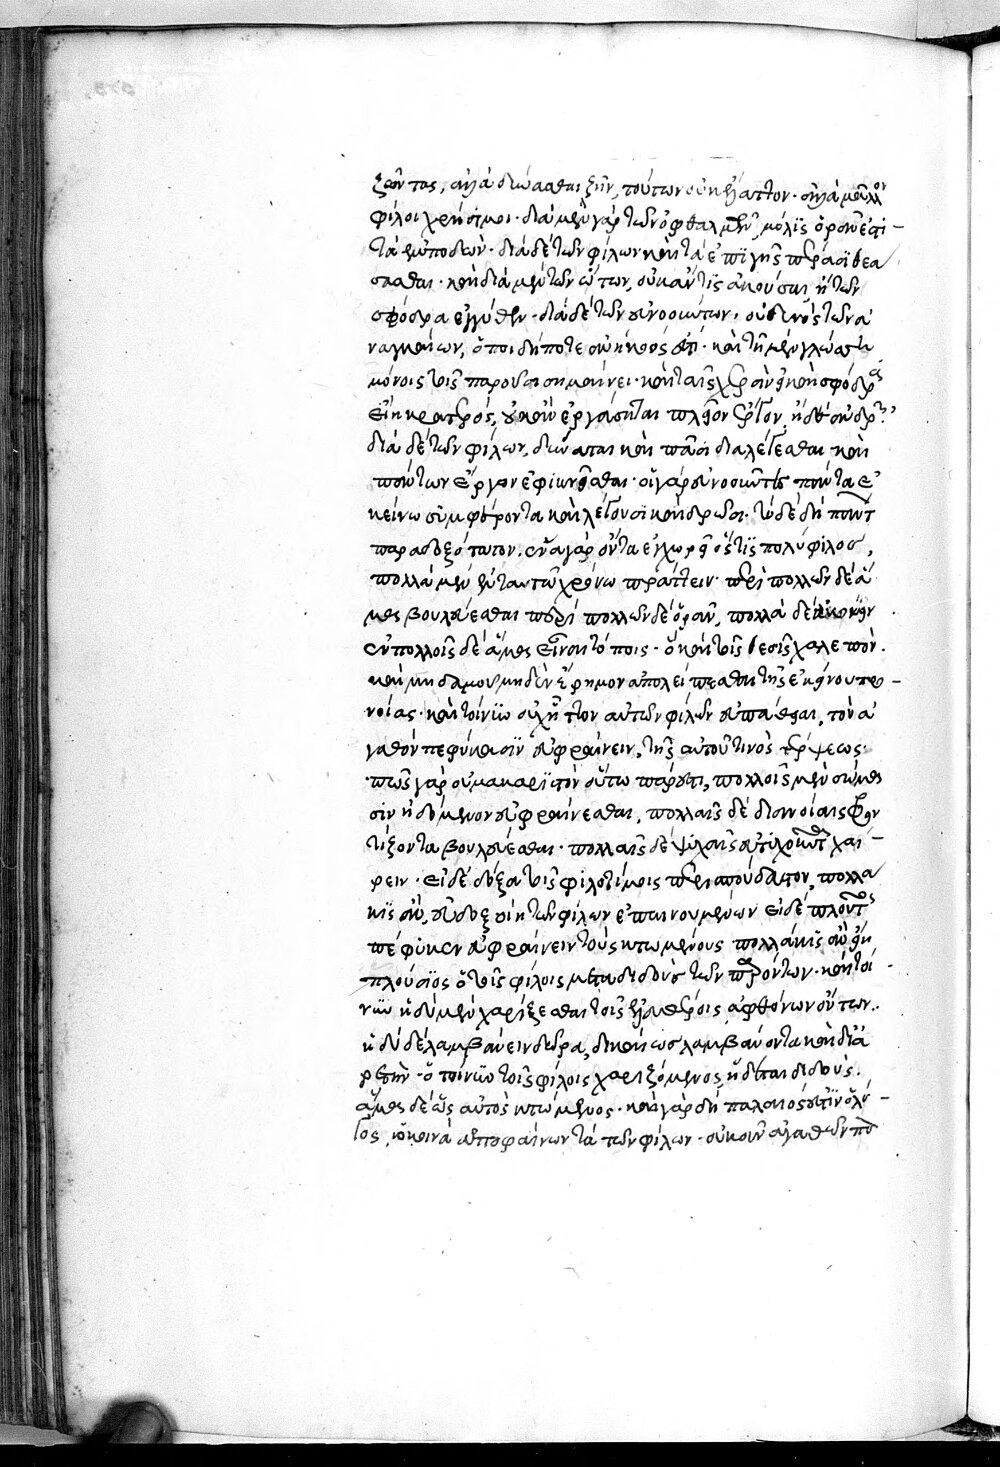 ζῶντας, ἀλλὰ δύνασθαι ζῆν, τούτων οὐκ ἔλαττον· ἀλλὰ μᾶλλον
φίλοι χρήσιμοι· διὰ μὲν γὰρ τῶν ὀφθαλμῶν, μόλις ὁρᾶν ἐστὶ
τὰ ἐμποδών· διὰ δὲ τῶν φίλων καὶ τὰ ἐπὶ γῆς πέρασι θεά
σασθαι· καὶ διὰ μὲν τῶν ὤτων, οὐκ ἄν τις ἀκούσαι ἢ τῶν
σφόδρα ἐγγύθεν· διὰ δὲ τῶν εὐνοούντων, οὐδενὸς τῶν ἀ
ναγκαίων, ὅποι δήποτε ἀνήκοός ἐστι· καὶ τῇ μὲν γλώττῃ
μόνοις τοῖς παροῦσι σημαίνει· καὶ ταῖς χερσὶν εἰ καὶ σφόδρα
εἴη καρτερός, οὐκ ἂν ἐργάσηται πλεῖον ἔργον, ἢ δύ' ἀνδρῶν·
διὰ δὲ τῶν φίλων, δύναται καὶ πᾶσι διαλέγεσθαι, καὶ
πάντων ἔργων ἐφικνεῖσθαι· οἱ γὰρ εὐνοοῦντες πάντα ἐ
κείνῳ συμφέροντα καὶ λέγουσι καὶ δρῶσι· τὸ δὲ δὴ πάντων
παραδοξότατον, ἕνα γὰρ ὄντα ἐγχωρεῖ ὅστις πολύφιλος,
πολλὰ μὲν ἐν ταυτῷ χρόνῳ πράττειν· περὶ πολλῶν δὲ ἅ
μα βουλεύεσθαι περὶ πολλῶν δὲ ὁρᾶν, πολλὰ δὲ ἀκούειν
ἐν πολλοῖς δὲ ἅμα εἶναι τόποις· ὃ καὶ τοῖς θεοῖς χαλεπόν·
καὶ μηδαμοῦ μηδὲν ἔρημον ἀπολείπεσθαι τῆς ἐκείνου προ
νοίας· καὶ τοίνυν οὐχ ἧττον αὐτῶν φίλων εὐπάθειαι, τὸν ἀ
γαθὸν πεφύκασιν εὐφραίνειν, τῆς αὐτοῦ τινὸς τέρψεως·
πῶς γὰρ οὐ μακαριστὸν οὕτω πάρεστι, πολλοῖς μὲν σώμα
σιν ἡδόμενον εὐφραίνεσθαι, πολλαῖς δὲ διανοίαις φρον
τίζοντα βουλεύεσθαι· πολλαῖς δὲ ψυχαῖς εὐτυχοῦντα χαί
ρειν· εἰ δὲ δόξα τοῖς φιλοτίμοις περισπούδαστον, πολλά
κις ἂν, εὐδοξοίη τῶν φίλων ἐπαινουμένων εἰ δὲ πλοῦτος
πέφυκεν εὐφραίνειν τοὺς κτωμένους πολλάκις ἂν εἴη
πλούσιος ὁ τοῖς φίλοις μεταδιδοὺς τῶν παρόντων· καὶ τοί
νυν ἡδὺ μὲν χαρίζεσθαι τοῖς ἐλευθέροις ἀφθόνων ὄντων·
ἡδὺ δὲ λαμβάνειν δῶρα, δικαίως λαμβάνοντα καὶ δι' ἀ
ρετήν· ὁ τοίνυν τοῖς φίλοις χαριζόμενος ἥδεται διδούς·
ἅμα δὲ ὡς αὐτὸς κτώμενος· καὶ γὰρ δὴ παλαιός ἐστιν ὁ λό
γος, ὁ κοινὰ ἀποφαίνων τὰ τῶν φίλων· οὐκοῦν ἀγαθῶν πο